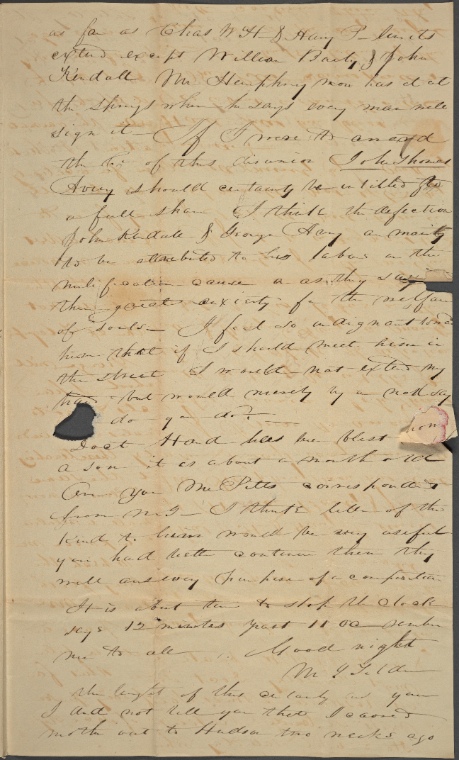 as far as Chas W. H & Harry P. limits
extend except William Baity & John
Kendall Mr Humphrey man has it at
the Springs where he says every man will
sign it — If I were to award
the of this disunion John Thomas
Avery should certainly be entitled to
a full share I think the defection
John Kendall & George Avery a mainly
to be attributed to his labors in the
nullification cause or as they say
their great anxiety for the welfare
of souls — I feel so indignant toward
him that if I should meet him in
the street I would not extend my
hand but would merely by a nod say
do you do? —
Doct Hand has been blest
a son it is about a month old
Are you Mr Pitts correspondent
from — I think letters of the
kind to him would be very useful
you had better continue them they
will answer purpose of a composition
It is about time to stop the clock
says 12 minutes past 11 oc
me to all Good night
M Y
the length of this
I did not tell you that I
moth out to Hudson two weeks ago